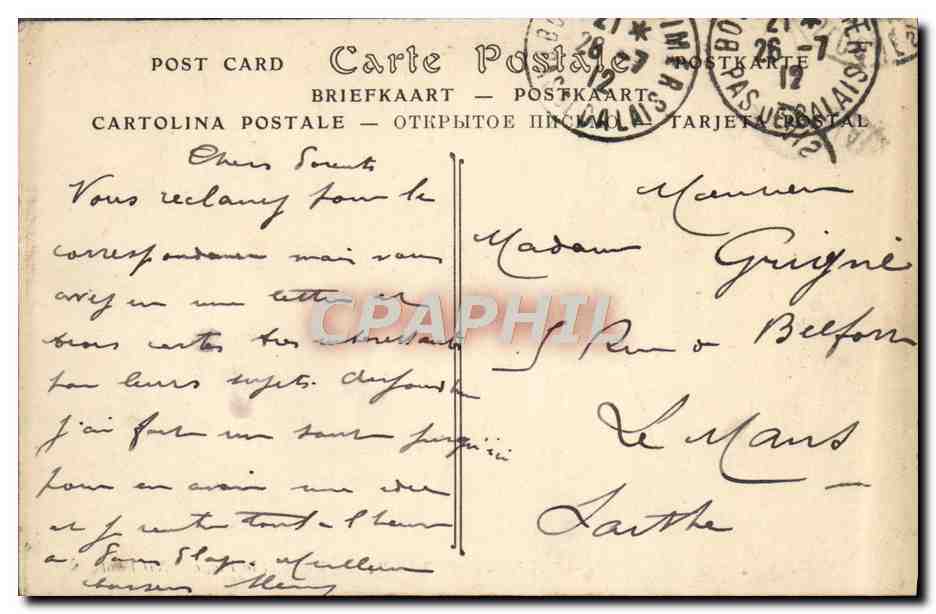 POST CARD Carte Postale POSTKARTE
BRIEFKAART — POSTKAART
CARTOLINA POSTALE — ОТКРЫТОЕ ПИСЬМО — TARJETA POSTAL
26 -7
12
PAS DE CALAIS
26 -7
12
Chers Parents
Vous reclamez pour la
correspondance mais vous
avez eu une lettre et
trois cartes tres interessantes
par leurs sujets.
j'ai fait un saut jusqu'ici
pour en avoir une idee
et je rentre tout a l'heure
a Paris Plage. Meilleurs
baisers
Monsieur
Madame Grigné
5 Rue de Belfort
Le Mans
Sarthe
CPAPHIL